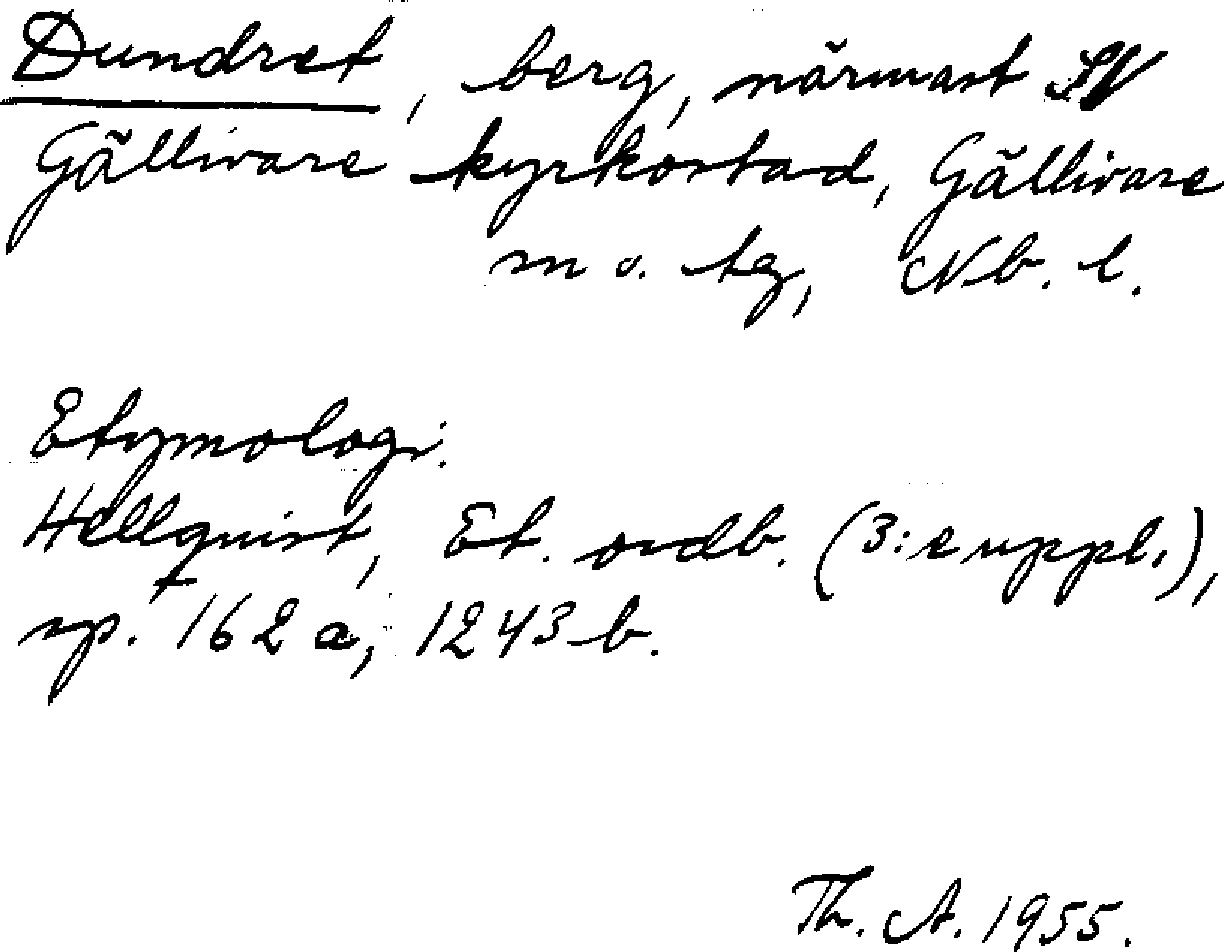 Dundret, berg, närmast SV
Gällivare kyrkostad, Gällivare
sn o. tg, Nb. l.
Etymologi.
Hellquist, Et. ordb. (3:e uppl.),
sp. 162 a, 1243 b.
Th. A. 1955.